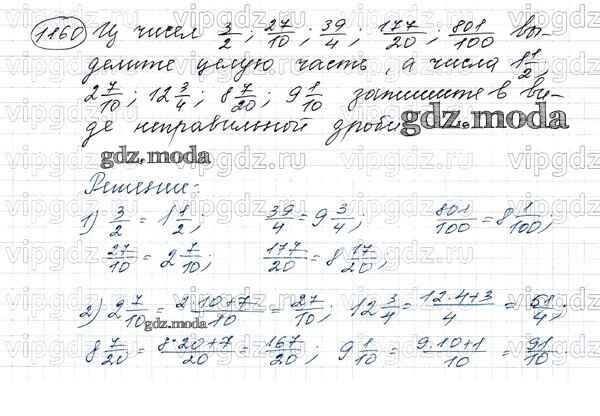 1160 Из чисел 3/2; 27/10; 39/4; 177/20; 801/100 вы-
делите целую часть, а числа 1 1/2;
2 7/10; 12 3/4; 8 7/20; 9 1/10 запишите в ви-
де неправильной дроби.
gdz.moda
gdz.moda
Решение:
1) 3/2 = 1 1/2; 39/4 = 9 3/4; 801/100 = 8 1/100;
27/10 = 2 7/10; 177/20 = 8 17/20;
2) 2 7/10 = 2·10+7/10 = 27/10; 12 3/4 = 12·4+3/4 = 51/4;
gdz.moda
8 7/20 = 8·20+7/20 = 167/20; 9 1/10 = 9·10+1/10 = 91/10.